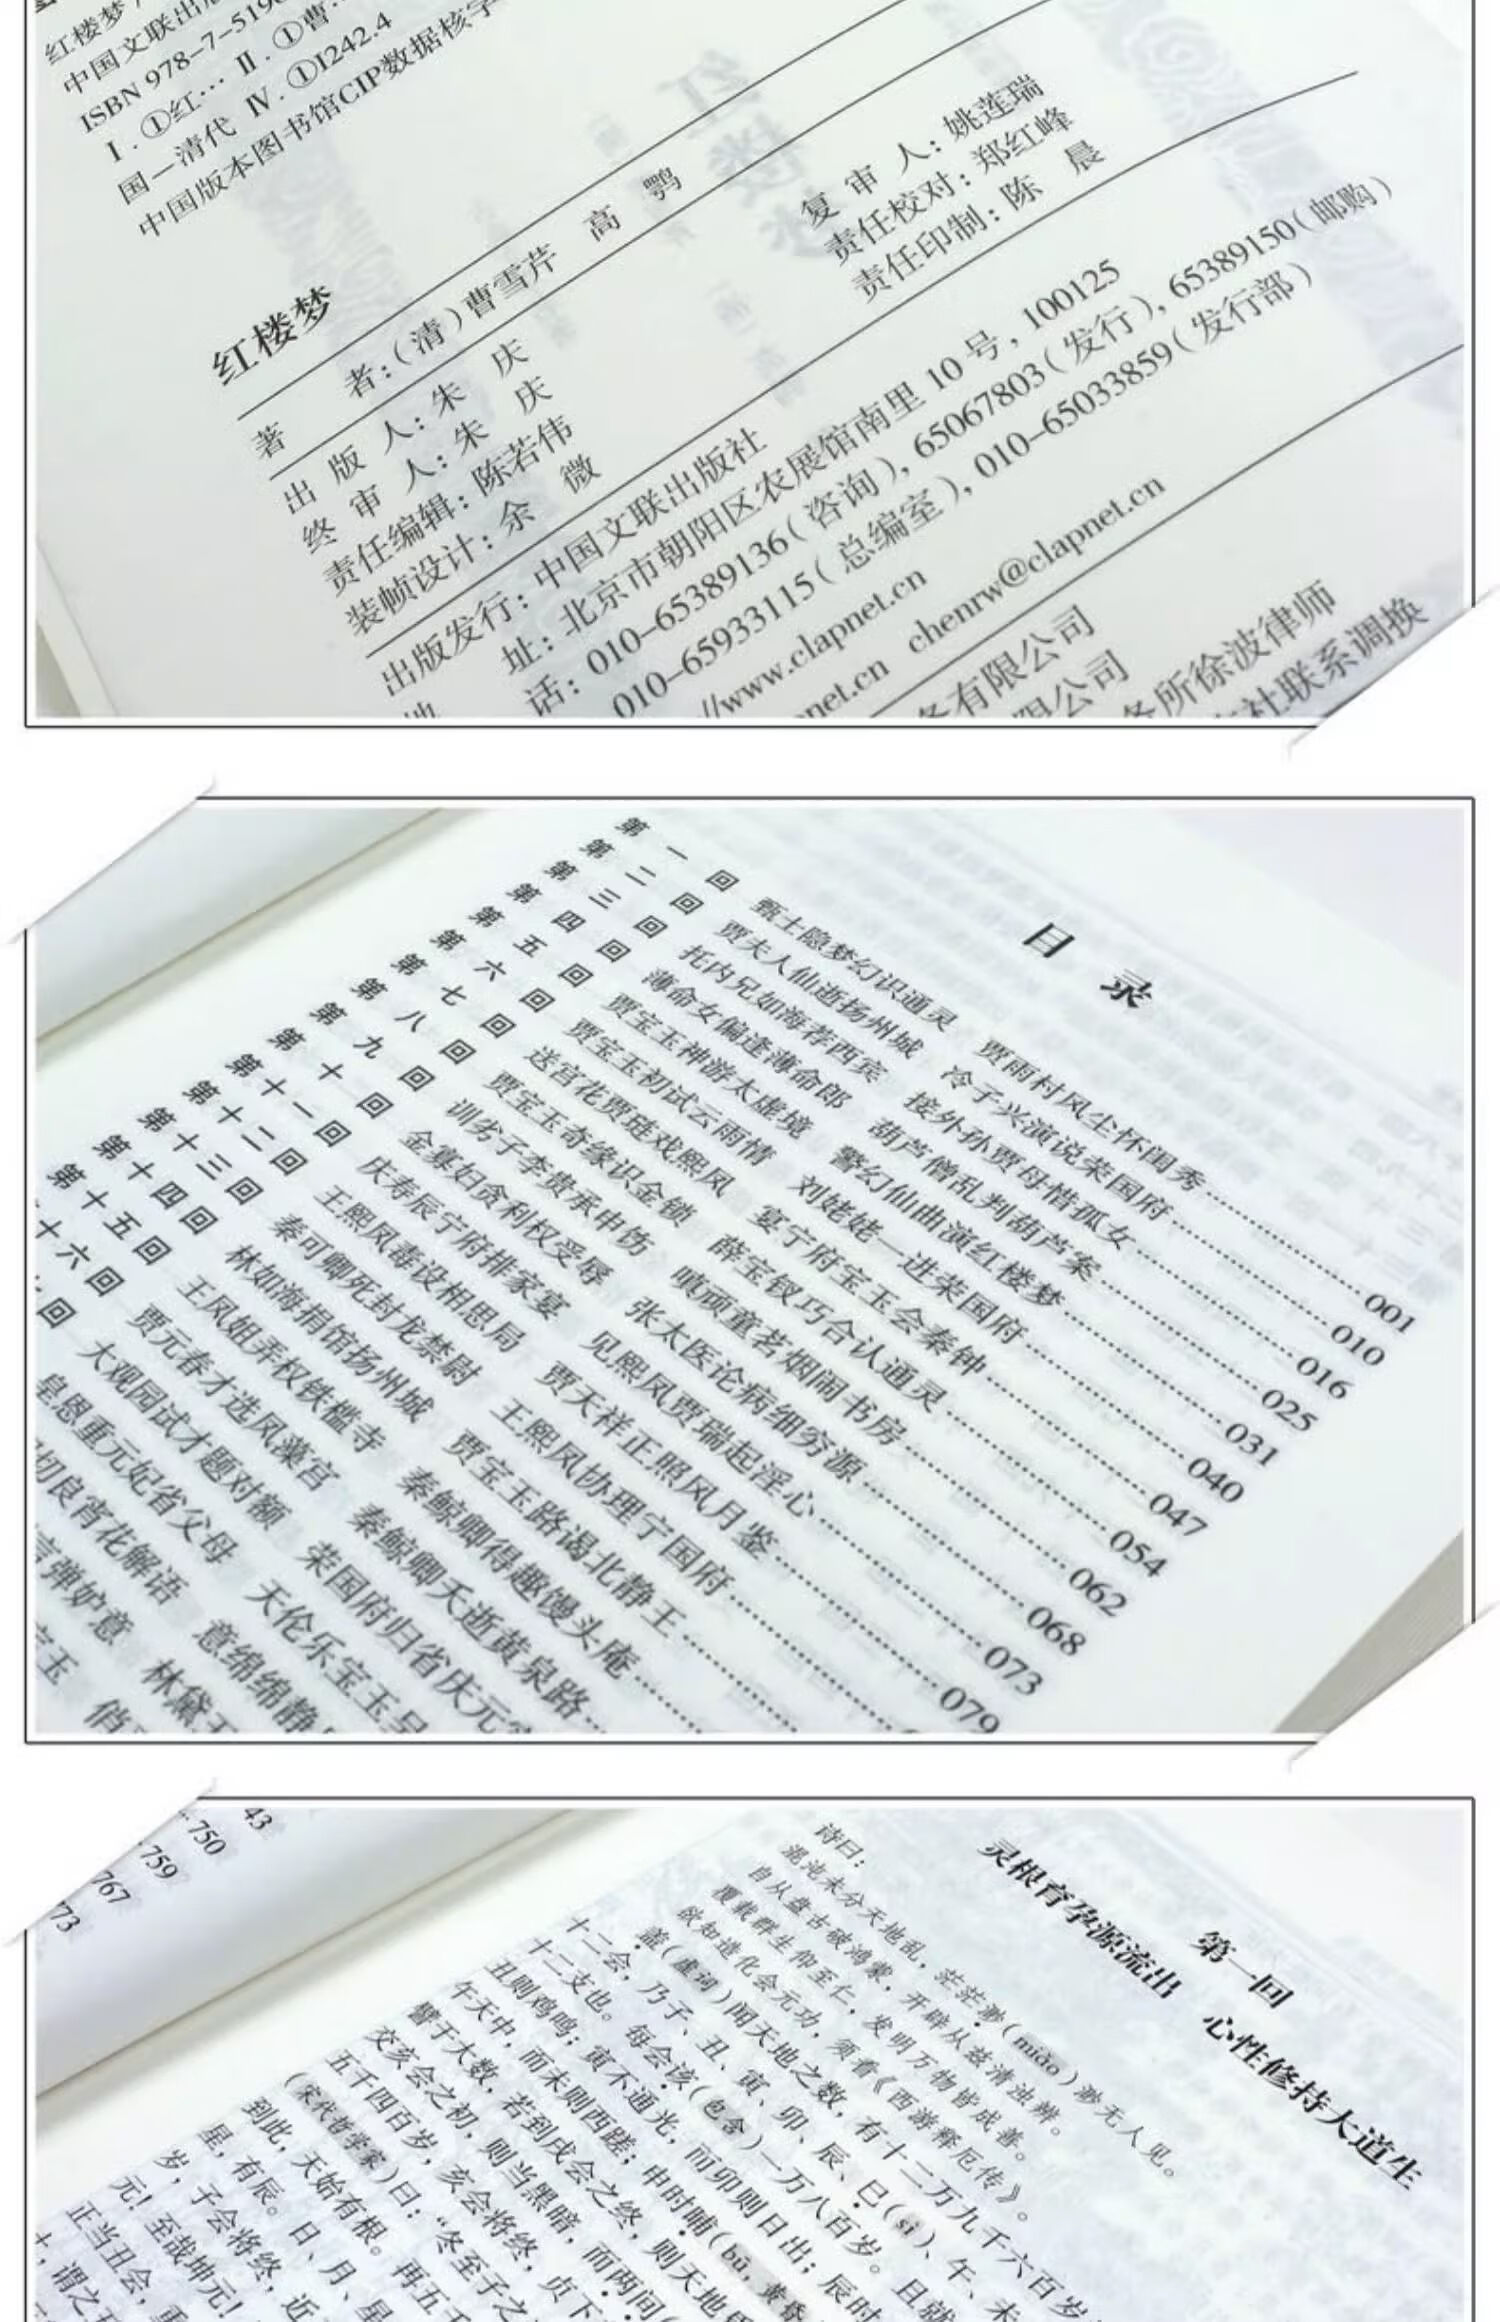 红楼梦
中国文联出版
ISBN 978-7-519
Ⅰ.①红… Ⅱ.①曹…
国－清代 Ⅳ.①I242.4
中国版本图书馆CIP数据核字
红楼梦
著 者：（清）曹雪芹 高 鹗
出 版 人：朱 庆
终 审 人：朱 庆
复 审 人：姚莲瑞
责任编辑：陈若伟
责任校对：郑红峰
装帧设计：余 微
责任印制：陈 晨
出版发行：中国文联出版社
地 址：北京市朝阳区农展馆南里 10 号，100125
话：010-65389136（咨询），65067803（发行），65389150（邮购）
010-65933115（总编室），010-65033859（发行部）
//www.clapnet.cn
pnet.cn chenrw@clapnet.cn
务有限公司
限公司
务所徐波律师
社联系调换
目 录
第 一 回 甄士隐梦幻识通灵 贾雨村风尘怀闺秀……001
第 二 回 贾夫人仙逝扬州城 冷子兴演说荣国府……010
第 三 回 托内兄如海荐西宾 接外孙贾母惜孤女……016
第 四 回 薄命女偏逢薄命郎 葫芦僧乱判葫芦案……025
第 五 回 贾宝玉神游太虚境 警幻仙曲演红楼梦……031
第 六 回 贾宝玉初试云雨情 刘姥姥一进荣国府……040
第 七 回 送宫花贾琏戏熙凤 宴宁府宝玉会秦钟……047
第 八 回 贾宝玉奇缘识金锁 薛宝钗巧合认通灵……054
第 九 回 训劣子李贵承申饬 嗔顽童茗烟闹书房……062
第 十 回 金寡妇贪利权受辱 张太医论病细穷源……068
第十一回 庆寿辰宁府排家宴 见熙凤贾瑞起淫心……073
第十二回 王熙凤毒设相思局 贾天祥正照风月鉴……079
第十三回 秦可卿死封龙禁尉 王熙凤协理宁国府……
第十四回 林如海捐馆扬州城 贾宝玉路谒北静王……
第十五回 王凤姐弄权铁槛寺 秦鲸卿得趣馒头庵……
十六回 贾元春才选凤藻宫 秦鲸卿夭逝黄泉路…
回 大观园试才题对额 荣国府归省庆元宵
皇恩重元妃省父母 天伦乐宝玉呈
切良宵花解语 意绵绵静
言弹妒意 林黛玉
玉 俏
43
750
759
767
73
第一回
灵根育孕源流出 心性修持大道生
诗曰：
混沌未分天地乱，茫茫渺（miǎo）渺无人见。
自从盘古破鸿蒙，开辟从兹清浊辨。
覆载群生仰至仁，发明万物皆成善。
欲知造化会元功，须看《西游释厄传》。
盖（虚词）闻天地之数，有十二万九千六百岁
十二会，乃子、丑、寅、卯、辰、巳（sì）、午、未
十二支也。每会该（包含）一万八百岁。且就
丑则鸡鸣；寅不通光，而卯则日出；辰时
午天中，而未则西蹉；申时晡（bū，黄昏
譬于大数，若到戌会之终，则天地
交亥会之初，则当黑暗，而两间
五千四百岁，亥会将终，贞下
（宋代哲学家）曰：“冬至子之
到此，天始有根。再五千
星，有辰。日、月、星
岁，子会将终，近
元！至哉坤元！
正当丑会，重
，谓之五